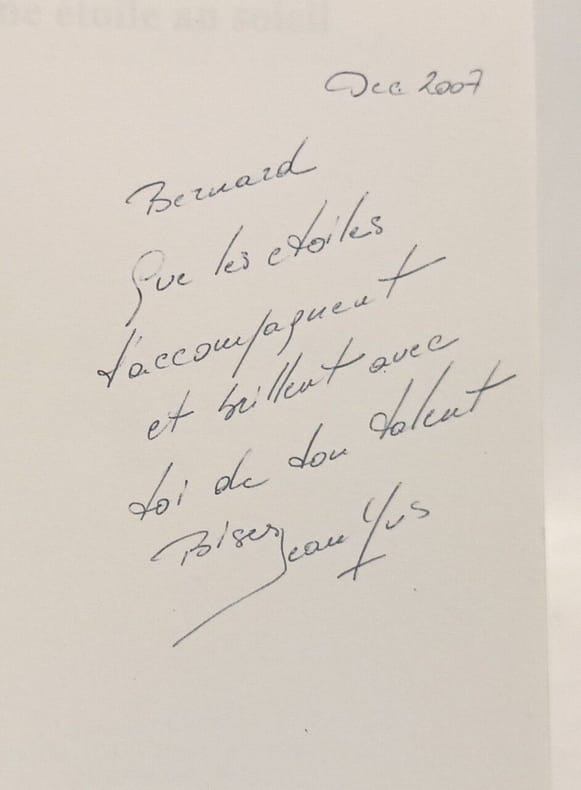 ne étoile au soleil
Dec 2007
Bernard
Que les etoiles
t'accompagnent
et brillent avec
toi de ton talent
Bises Jean Yves